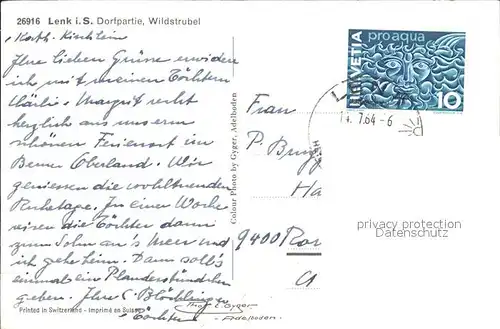 26916 Lenk i.S. Dorfpartie, Wildstrubel
Kath. Kirchlein
Ihre lieben Grüsse erwidern
ich, mit meinen Töchtern
Klärli + Margrit recht
herzlich aus unserm
schönen Ferienort im
Berner Oberland. Wir
geniessen die wohltuenden
Ruhetage. In einer Woche
reisen die Töchter dann
zum Sohn an's Meer und
ich gehe heim. Dann soll's
einmal ein Plauderstündchen
geben. Ihre C. Blöchlinger
+ Töchter
Printed in Switzerland - Imprimé en Suisse
Phot. E. Gyger
Adelboden.
Colour Photo by Gyger, Adelboden
HELVETIA
pro aqua
10
7.64-6
Frau
P.
9400
privacy protection
Datenschutz